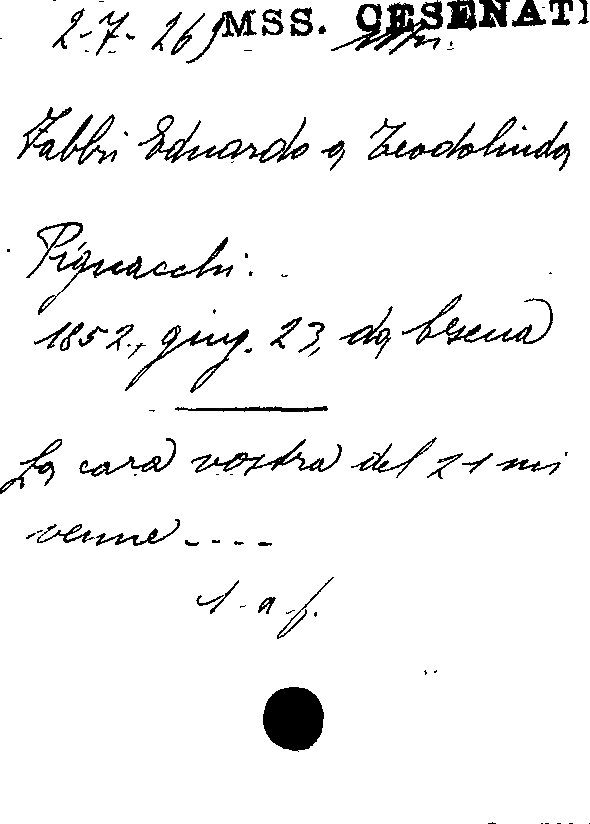 2-7-26) MSS. CESENATI
Fabbri Eduardo a Teodolinda
Pignacchi.
1852, giug. 23, da Cesena
La cara vostra del 21 mi
venne ----
1 - a - f.